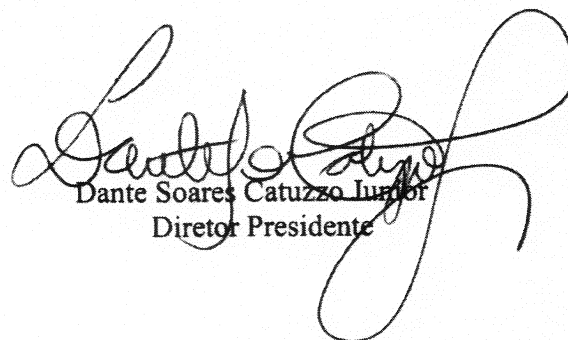 Dante Soares Catuzzo Junior
Diretor Presidente